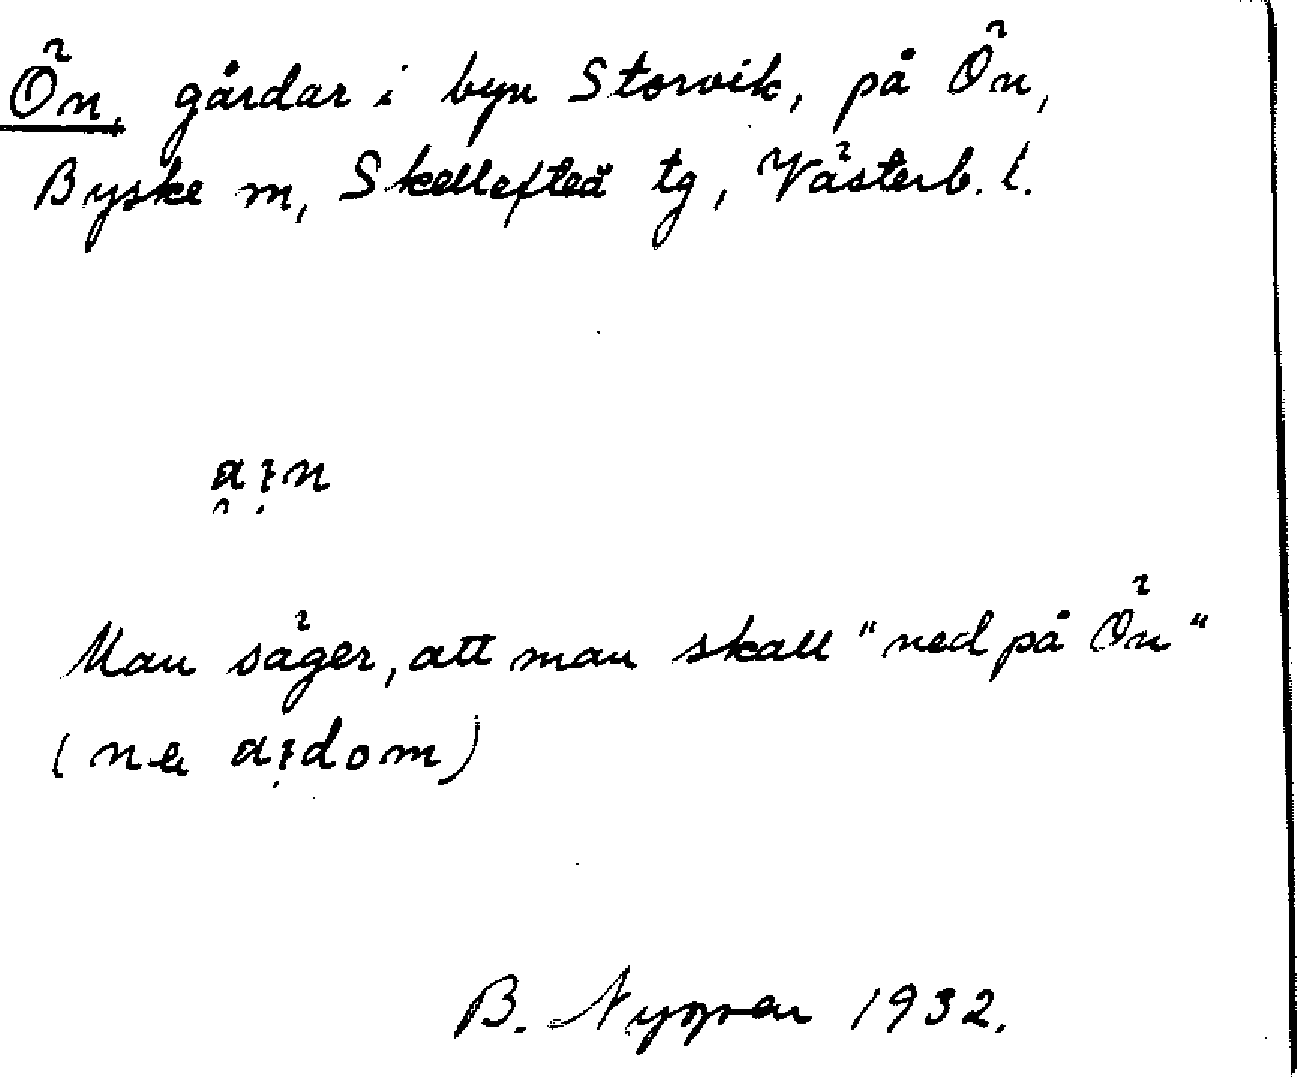 Ön, gårdar i byn Storvik, på Ön,
Byske m, Skellefteå tg, Västerb. l.
Man säger, att man skall "ned på Ön"
B. Nygren 1932.